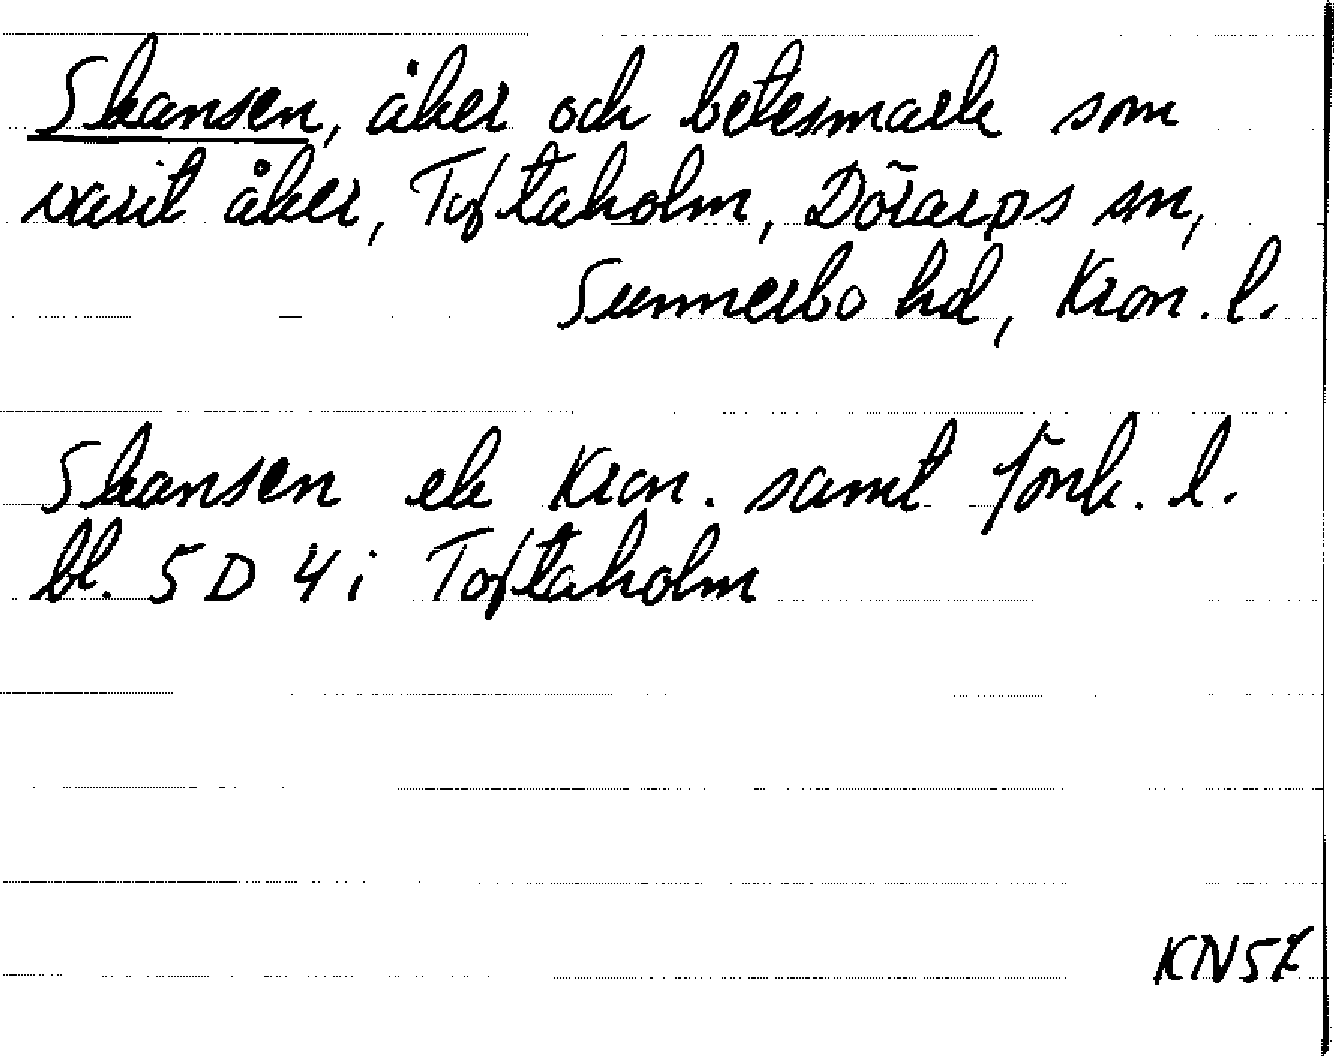 Skansen, åker och betesmark som
varit åker, Toftaholm, Dörarps sn,
Sunnerbo hd, Kron. l.
Skansen ek Kron. samt Jönk. l.
bl. 5 D 4 i Toftaholm
KN57